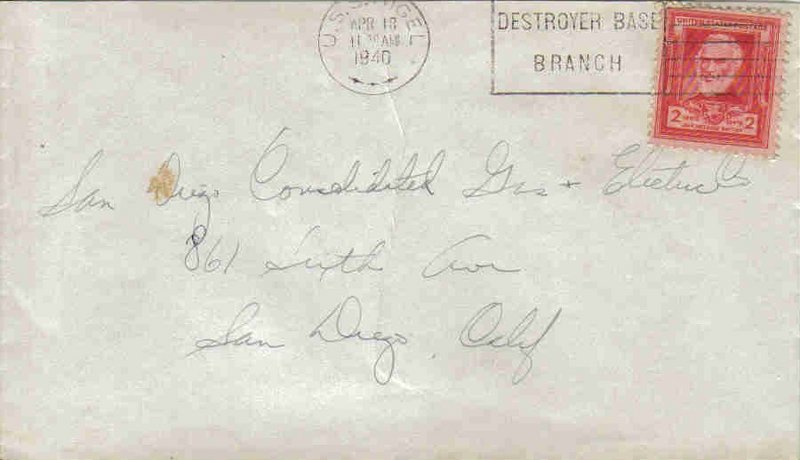 U.S.S. RIGEL
APR 18
11 30 AM
1940
DESTROYER BASE
BRANCH
2 2
San Diego Consolidated Gas + Electric Co
861 Sixth Ave
San Diego, Calif